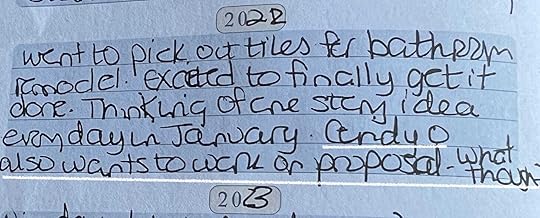 2022
went to pick out tiles for bathroom
remodel. excited to finally get it
done. Thinking of one story idea
everyday in January. Cindy O
also wants to work on proposal. what
though
2013